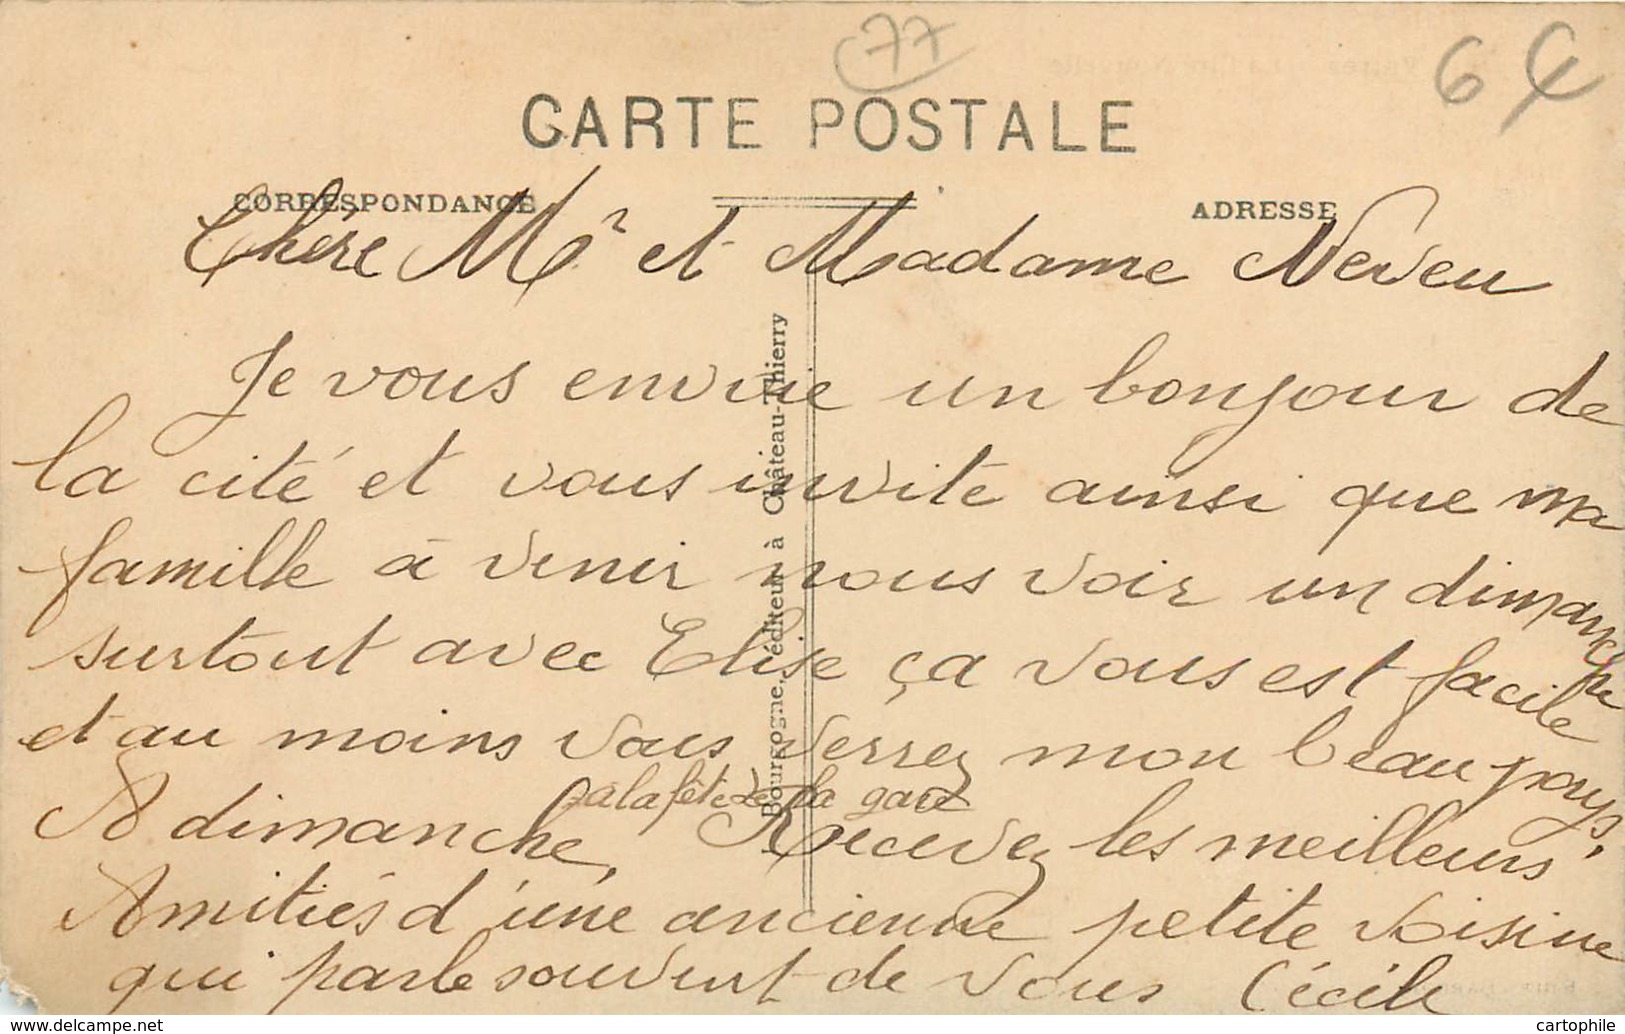 77
6 €
CARTE POSTALE
CORRESPONDANCE
ADRESSE
Chère Mr et Madame Neveu
Je vous envoie un bonjour de
la cité et vous invite ainsi que ma
famille à venir nous voir un dimanche
surtout avec Elise ça vous est facile
et au moins vous verrez mon beau pays,
a la fête de la gare
A dimanche, Recevez les meilleurs
Amitiés d'une ancienne petite voisine
qui parle souvent de vous Cécile
Bourgogne, éditeur à Château-Thierry
www.delcampe.net
cartophile